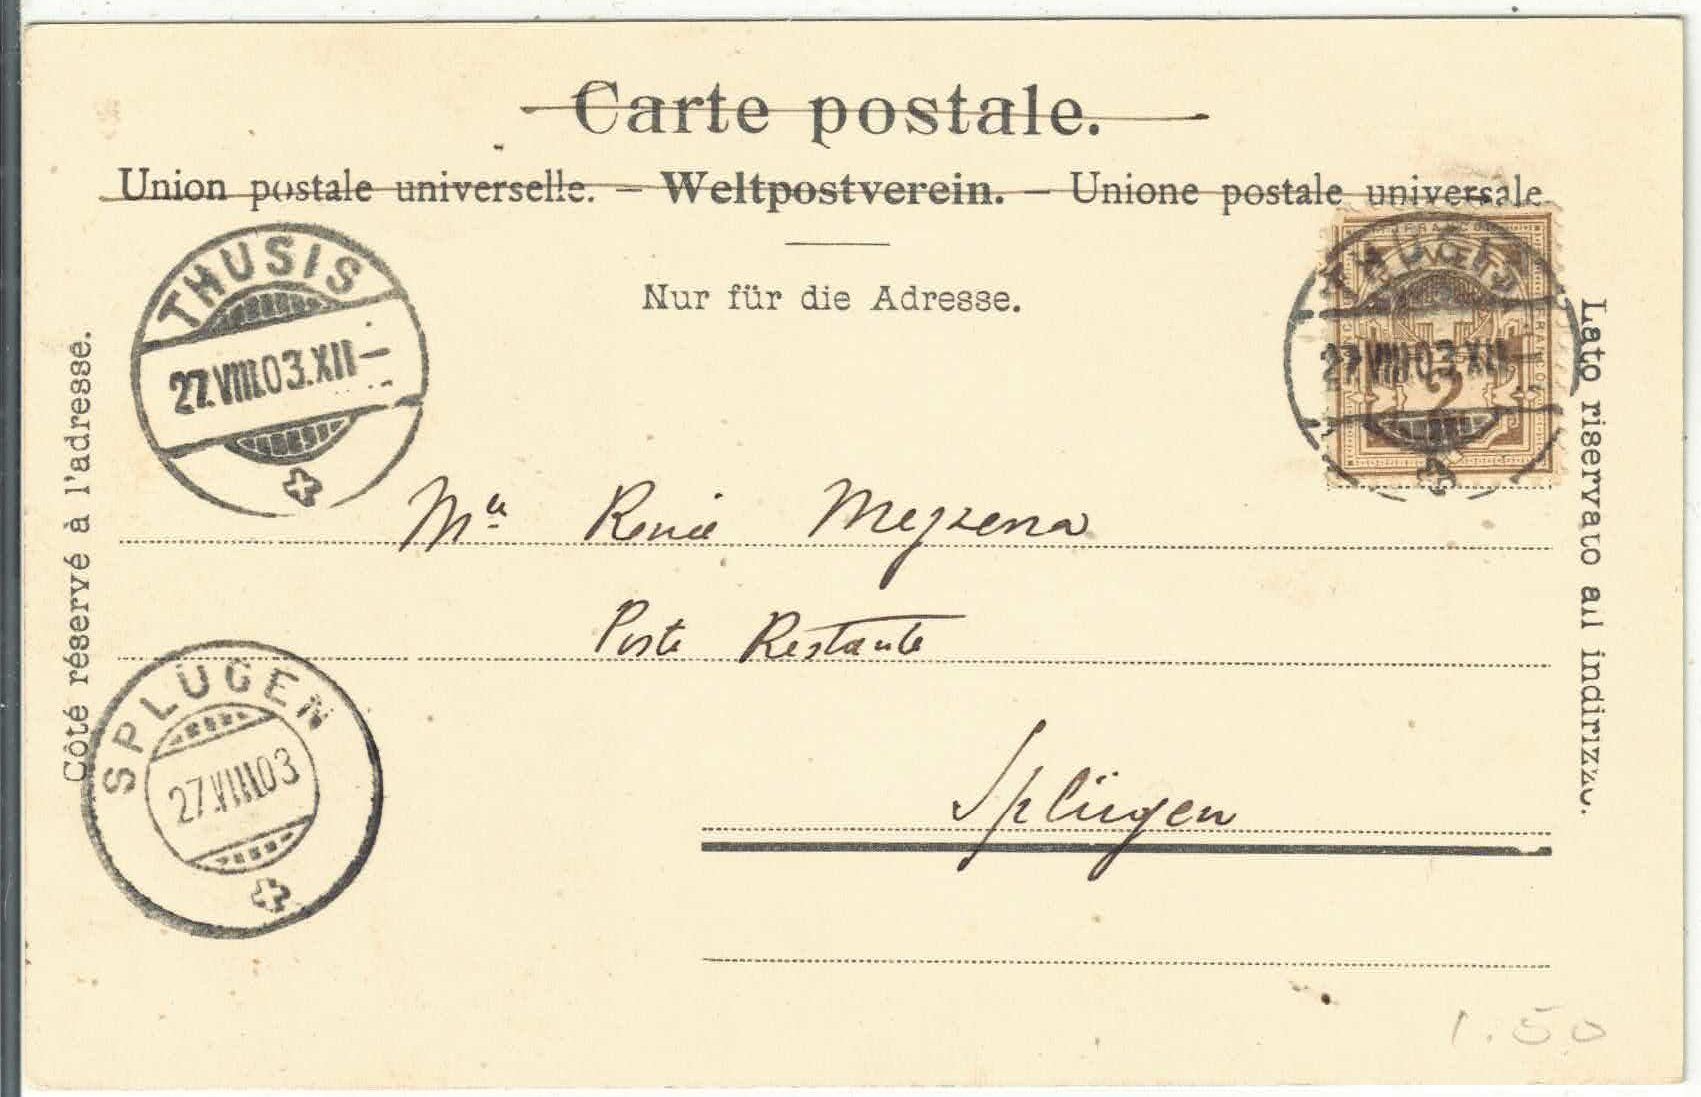 Carte postale.
Union postale universelle. — Weltpostverein. — Unione postale universale
Nur für die Adresse.
Côté réservé à l'adresse.
Lato riservato all indirizzo.
THUSIS
27.VIII.03.XII—
THUSIS
27.VIII.03.XII—
2
Mlle Renée Meyzena
Poste Restante
Splügen
SPLÜGEN
27.VIII.03
1.50